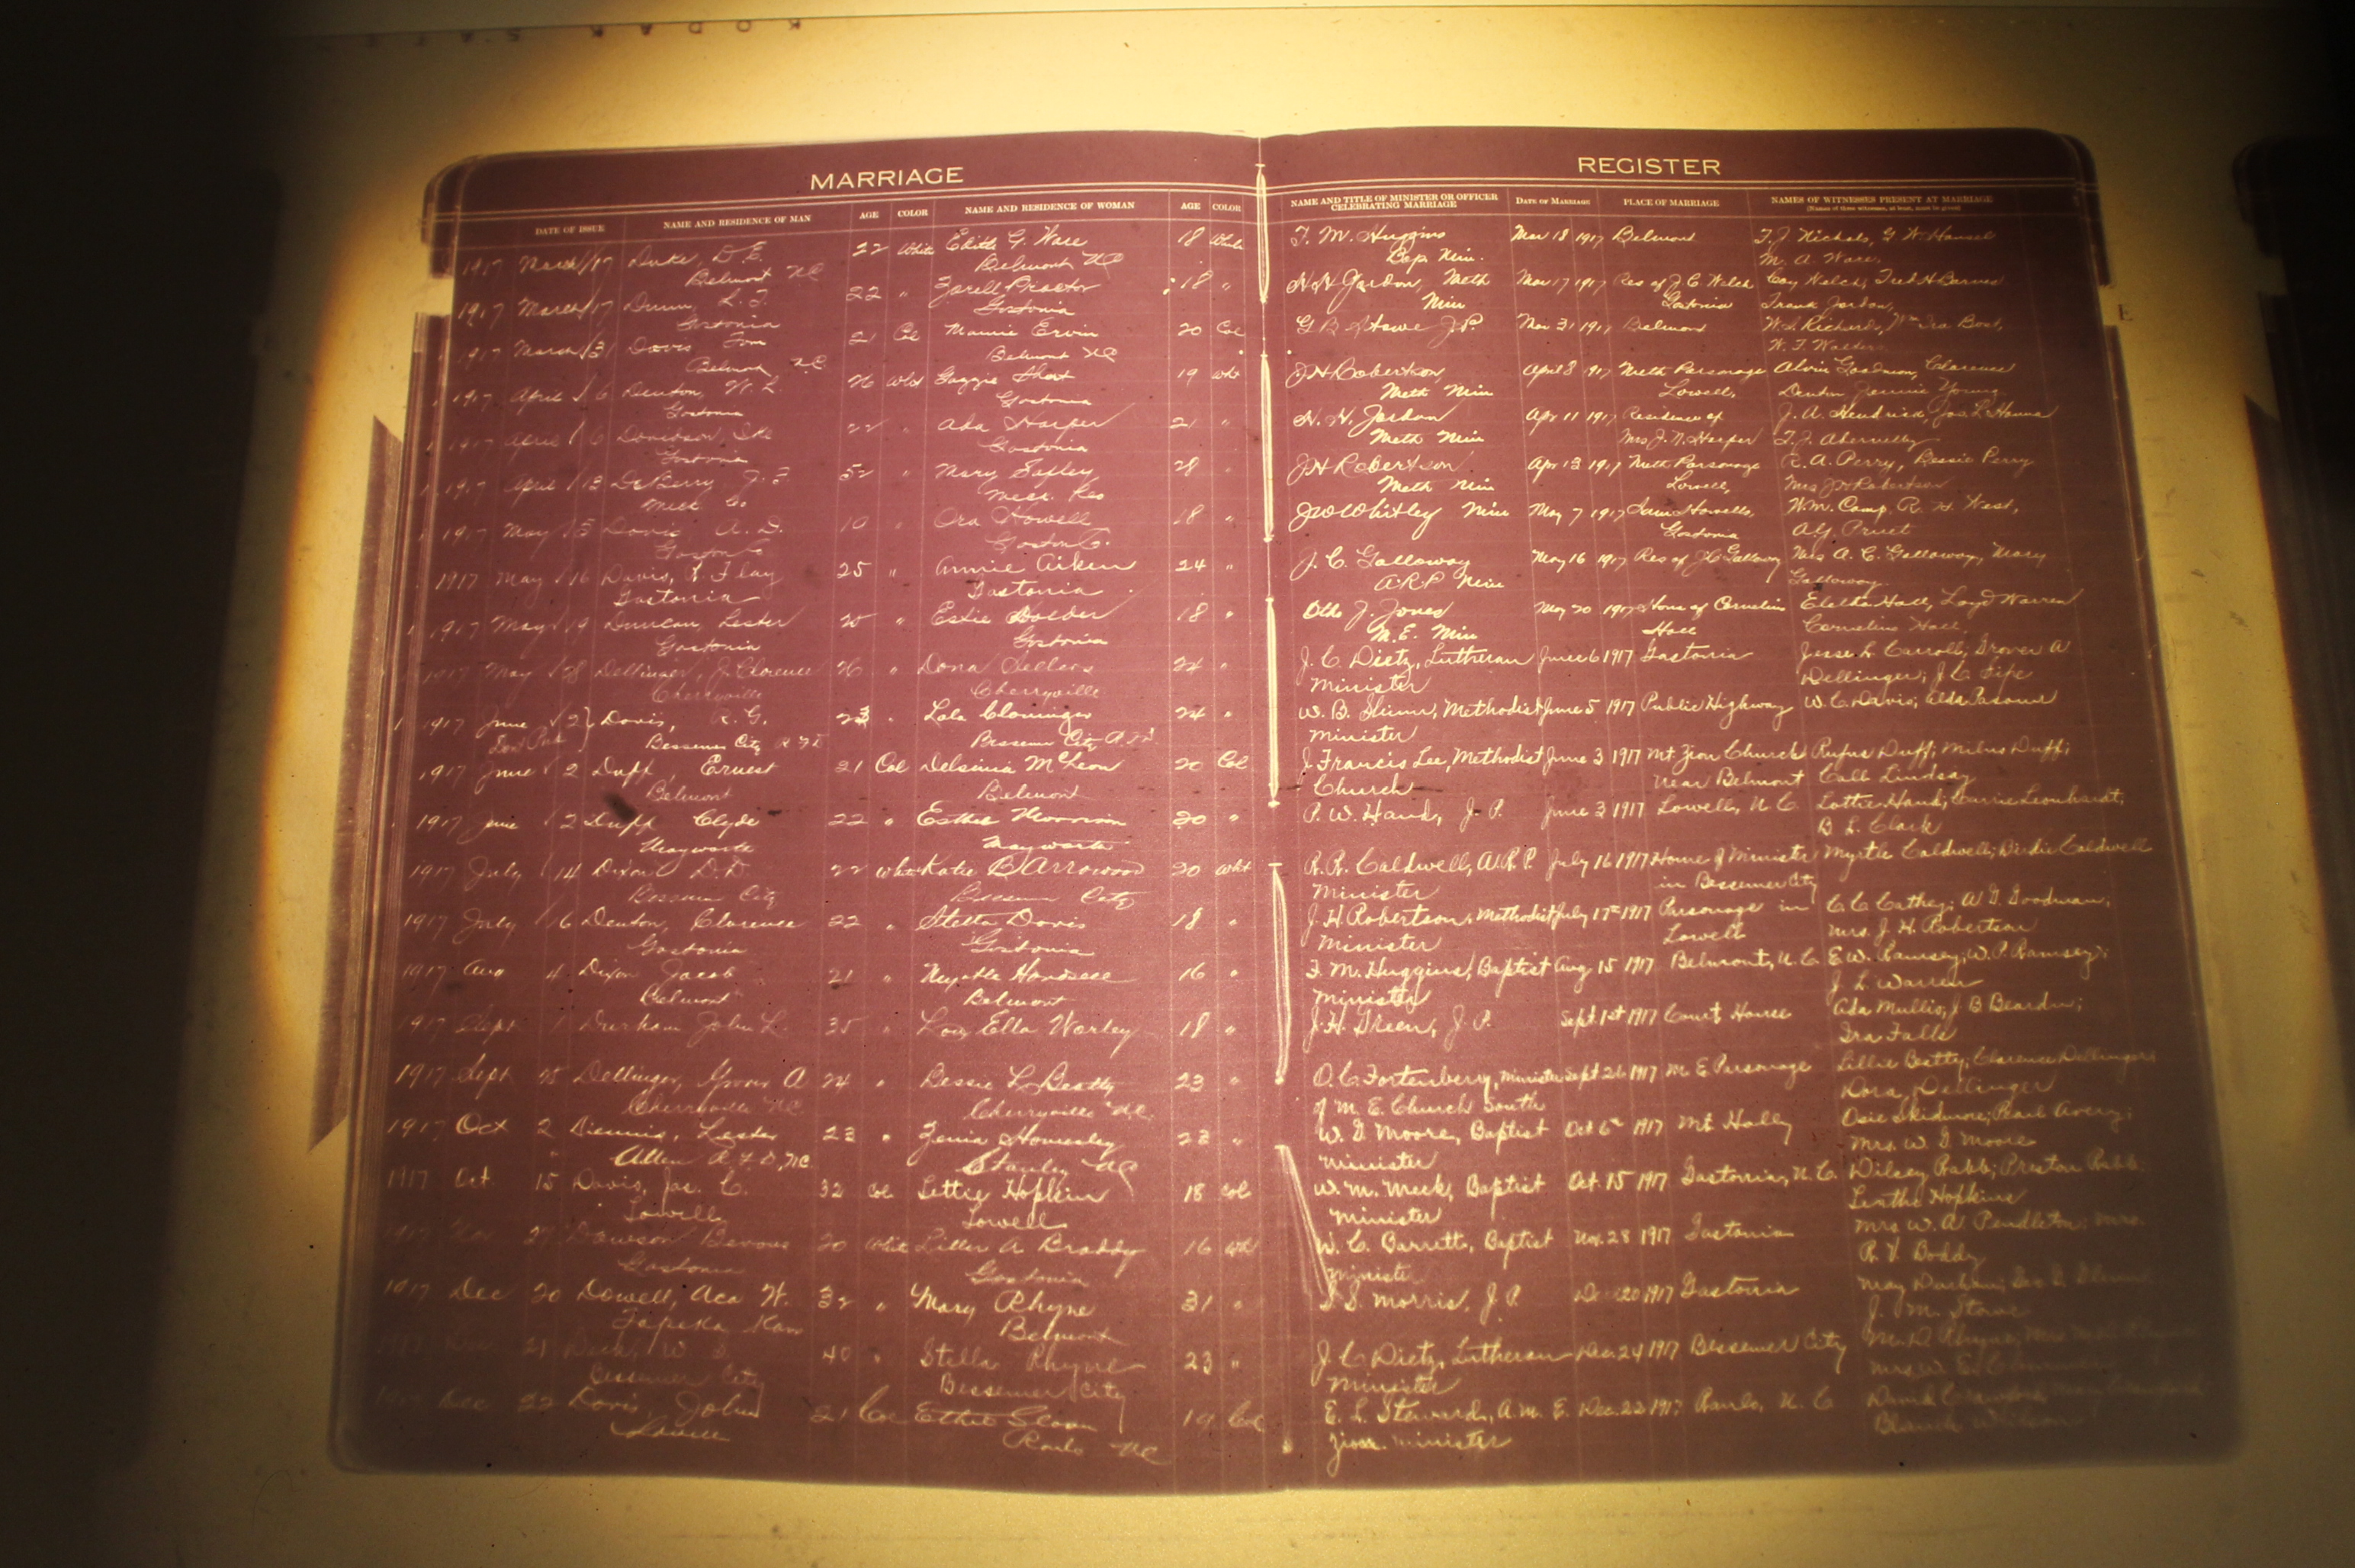 KODAK SAFETY
MARRIAGE REGISTER
DATE OF ISSUE NAME AND RESIDENCE OF MAN AGE COLOR NAME AND RESIDENCE OF WOMAN AGE COLOR NAME AND TITLE OF MINISTER OR OFFICER CELEBRATING MARRIAGE DATE OF MARRIAGE PLACE OF MARRIAGE NAMES OF WITNESSES PRESENT AT MARRIAGE
(Names of three witnesses, at least, must be given)
1917 March 17 Duke, D. E. 22 White Edith G. Ware 18 White F. M. Huggins Mar 18 1917 Belmont T. J. Nichols, G. W. Hansel
Belmont NC Belmont NC Bap Min. M. A. Ware.
1917 March 17 Dunn, L. F. 22 " Zorell Proctor 18 " Mar 17 1917 Res of J C Welch Coy Welch,
Gastonia Gastonia Min Gastonia Frank Jordan,
1917 March 31 Davis Tom 21 Col Mamie Ervin 20 Col G. B. Howe J.P. Mar 31 1917 Belmont W. L. Richards,
Belmont NC Belmont NC
1917 April 6 Denton, W. L. 26 Wht Short 19 Wht J H Robertson, April 8 1917 Meth Parsonage Alvin Goodman, Clarence
Gastonia Gastonia Meth Min Lowell, Denton Jennie Young
1917 April 6 Davidson 22 " Ada Harper 21 " H. H. Jordan Apr 11 1917 Residence of J. A. Hendricks,
Gastonia Gastonia Meth Min Mrs J. N. Harper
1917 April 13 DeBerry J. F. 52 " Mary Safley 28 " J H Robertson Apr 13 1917 Meth Parsonage R. A. Perry, Bessie Perry
Meck Co Meck Meth Min Lowell, Mrs J H Robertson
1917 May 5 Davis A. D. " Ora Howell 18 " J W Whitley Min May 7 1917 Howells, W. M. Camp, R. H. West,
Gaston Co Gaston Co. Gastonia
1917 May 16 Davis, L. Flay 25 " Annie Aiken 24 " J. C. Galloway May 16 1917 Res of J C Galloway Mrs A. C. Galloway, Mary
Gastonia Gastonia A.R.P Min Galloway.
1917 May 19 Duncan, Lester 20 " Estie Holder 18 " Otho J. Jones May 20 1917 Home of Cornelius Hall, Loyd Warren
Gastonia Gastonia M.E. Min Hall Cornelius Hall,
1917 May 28 Dellinger, J. Clarence 26 " Dona Sellars 24 " J. C. Dietz, Lutheran June 6 1917 Gastonia Jesse L. Carroll; Grover A
Cherryville Cherryville Minister Dellinger; J. C. Fife
1917 June 2 Davis, R. G. 23 " Lola Cloninger 24 " W. B. Shinn, Methodist June 5 1917 Public Highway W. C. Davis;
Bessemer City R F D Bessemer City R F D Minister
1917 June 2 Duff, Ernest 21 Col Delsinia McLean 20 Col J. Francis Lee, Methodist June 3 1917 Mt Zion Church Rufus Duff; Milus Duff;
Belmont Belmont Church near Belmont Call Lindsay
1917 June 2 Duff Clyde 22 " Esther Morrison 20 " P. W. Hand, J. P. June 3 1917 Lowell, N. C. Lottie Hand; Carrie Leonhardt;
Mayworth Mayworth B. L. Clark
1917 July 14 Dixon D. D. 22 White Katie B Arrowood 20 Wht R. R. Caldwell, A.R.P. July 16 1917 Home of Minister Myrtle Caldwell; Birdie Caldwell
Bessemer City Bessemer City Minister in Bessemer City
1917 July 16 Denton, Clarence 22 " Stella Davis 18 " J. H. Robertson, Methodist July 17th 1917 Parsonage in C. C. Cathey; A. G. Goodman,
Gastonia Gastonia Minister Lowell Mrs. J. H. Robertson
1917 Aug 4 Dixon Jacob 21 " Myrtle Hansell 16 " F. M. Huggins, Baptist Aug 15 1917 Belmont, N. C. E. W. Ramsey; W. P. Ramsey;
Belmont Belmont Minister J. L. Warren
1917 Sept 1 Durham John L. 35 " Ella Worley 18 " J. H. Green, J. P. Sept 1st 1917 Court House Ada Mullis; J B Bearden;
Ira Falls
1917 Sept 25 Dellinger, Grover A 24 " Bessie L. Beatty 23 " O. C. Fortenbery, Minister Sept 26 1917 M. E Parsonage Lillie Beatty; Clarence Dellinger;
Cherryville NC Cherryville N.C. of M. E. Church South Dora Dellinger
1917 Oct 2 Lester 23 " Zenia Homesley 23 " W. G. Moore, Baptist Oct 6th 1917 Mt Holly Osie Skidmore; Pearl Avery;
R. F. D., NC. Stanley NC Minister Mrs. W. G Moore
1917 Oct. 15 Davis, Jas. C. 32 Col Lettie Hopkins 18 Col W. M. Meek, Baptist Oct. 15 1917 Gastonia, N. C. Dilsey Rabb; Preston Rabb;
Lowell Lowell Minister Hopkins
1917 Nov 27 Dawson 20 White A. Braddy 16 Wht W. C. Barrett, Baptist Nov. 28 1917 Gastonia Mrs. W. A. Pendleton; Mrs.
Gastonia Gastonia Minister R. V. Boddy
1917 Dec 20 Dowell, Aca W. 32 " Mary Rhyne 31 " S. S. Morris, J. P. Dec 20 1917 Gastonia May Durham;
Topeka Kan Belmont J. M.
21 40 " Stella Rhyne 23 " J. C. Dietz, Lutheran Dec. 24 1917 Bessemer City M. D. Rhyne;
Bessemer City Bessemer City Minister Mrs W. E.
Dec 22 Davis John 21 Col Sloan 19 Col E. L. Steward, A. M. E. Dec. 22 1917 Ranlo, N. C. David Crawford,
Ranlo NC Zion. Minister Blanch